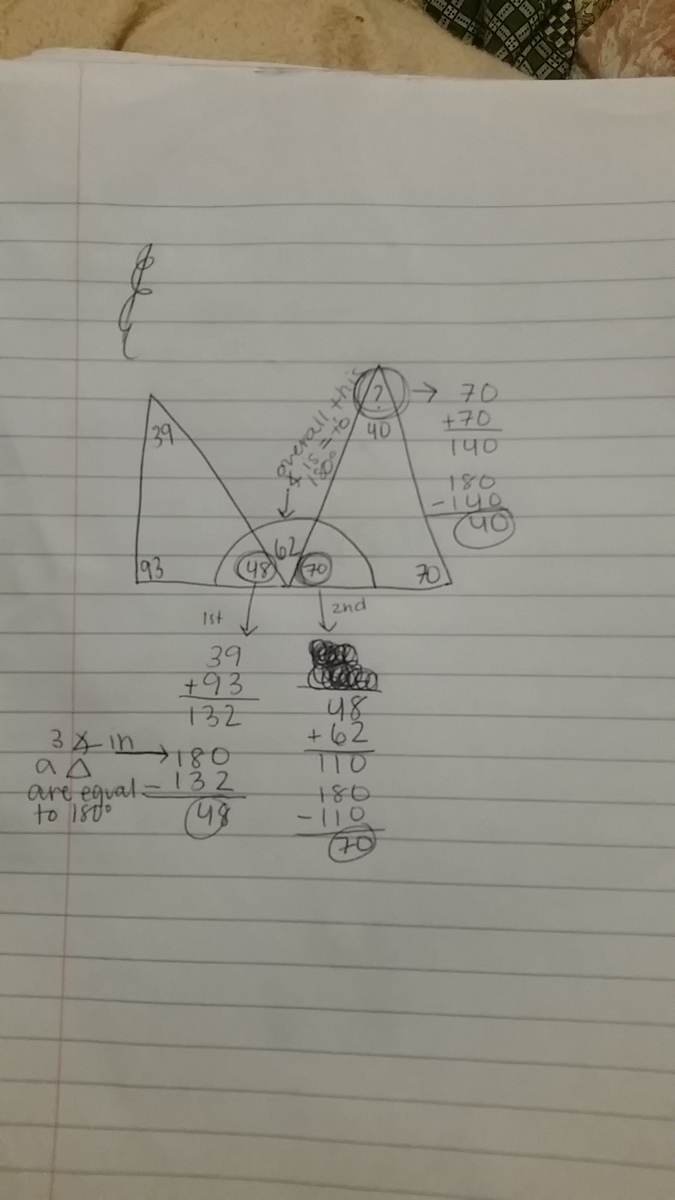 overall this
∡ is = to
180°
?
40
→ 70
+70
140
180
-140
40
39
93
48
62
70
70
1st
2nd
39
+93
132
3 ∡ in
a △
are equal
to 180°
180
-132
48
48
+62
110
180
-110
70